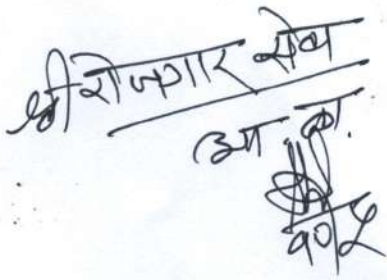 श्री रोजगार सेवा
आ का.
१०/५